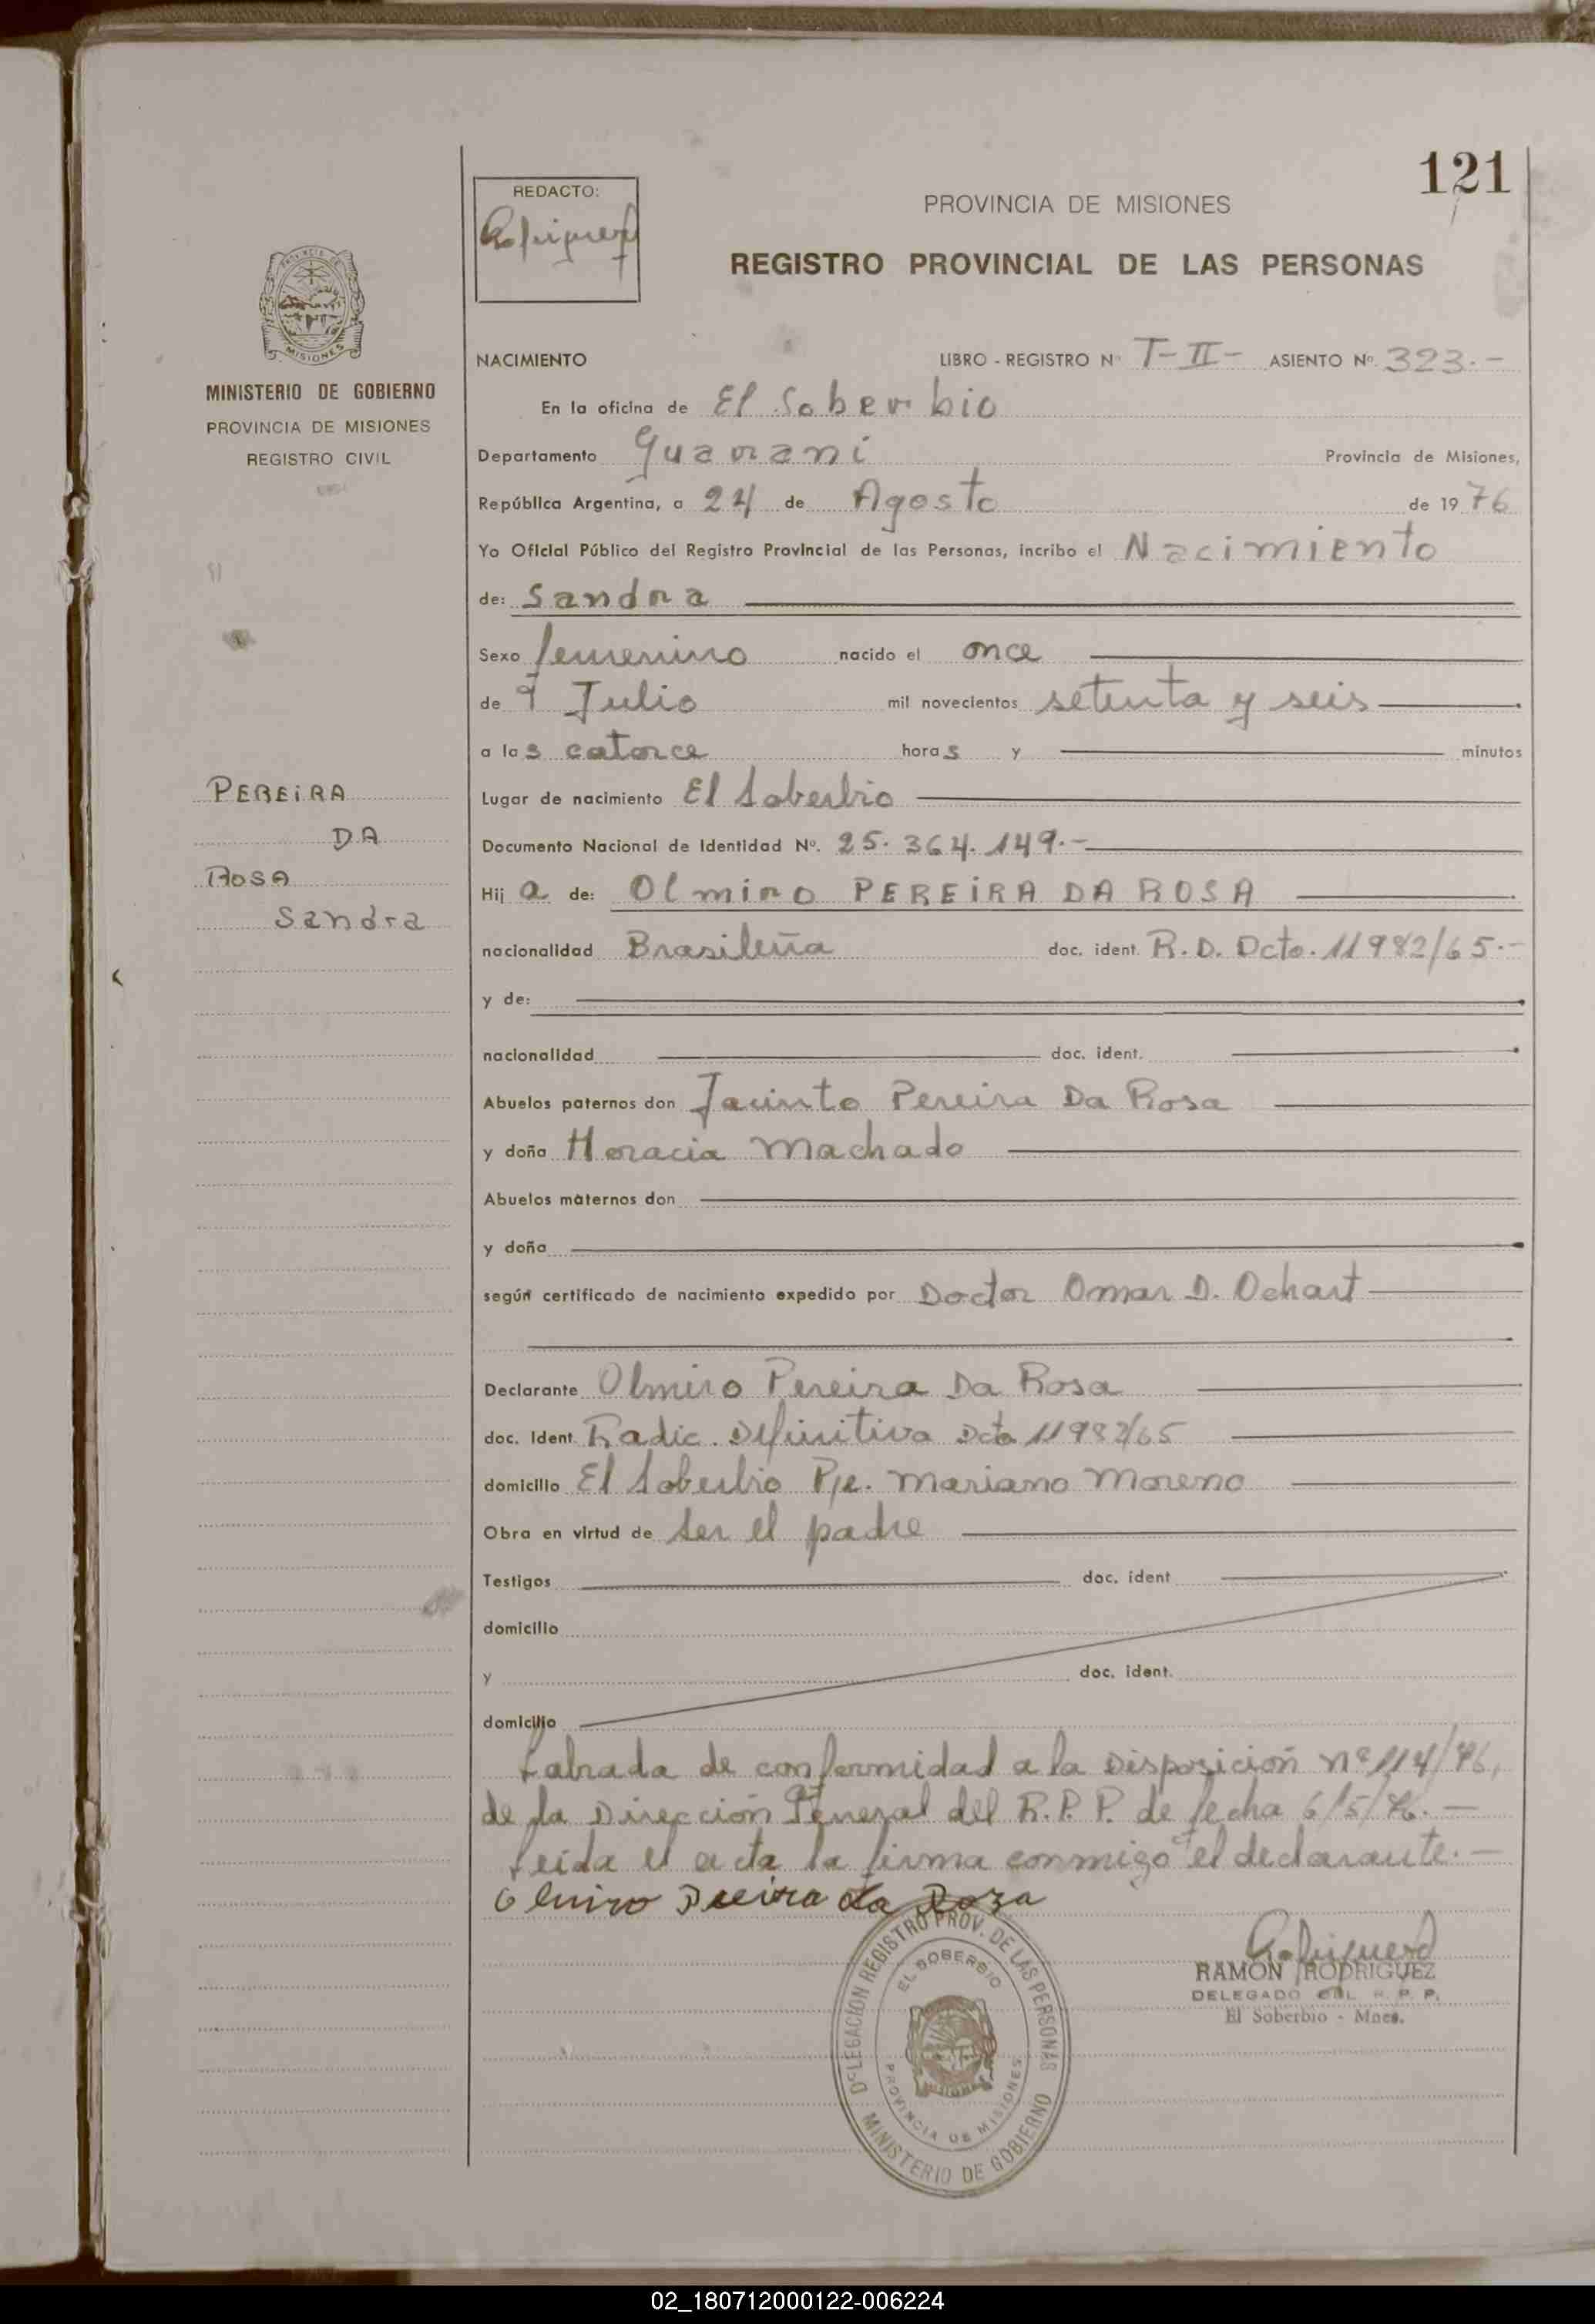 121
REDACTO:
PROVINCIA DE MISIONES
REGISTRO PROVINCIAL DE LAS PERSONAS
MISIONES
MINISTERIO DE GOBIERNO
PROVINCIA DE MISIONES
REGISTRO CIVIL
NACIMIENTO LIBRO - REGISTRO Nº T-II- ASIENTO Nº. 323.-
En la oficina de El Soberbio
Departamento Guarani Provincia de Misiones,
República Argentina, a 24 de Agosto de 1976
Yo Oficial Público del Registro Provincial de las Personas, incribo el Nacimiento
de: Sandra
Sexo femenino nacido el once
de Julio mil novecientos setenta y seis
a las catorce horas y minutos
PEREiRA
DA
ROSA
Sandra
Lugar de nacimiento El Soberbio
Documento Nacional de Identidad Nº. 25.364.149.-
Hija de: Olmiro PEREiRA DA ROSA
nacionalidad Brasileña doc. ident. R.D. Dcto. 11982/65.-
y de:
nacionalidad doc. ident.
Abuelos paternos don Jacinto Pereira Da Rosa
y doña Horacia Machado
Abuelos maternos don
y doña
según certificado de nacimiento expedido por Doctor Omar D. Ochart
Declarante Olmiro Pereira Da Rosa
doc. Ident. Radic. Definitiva Dcto 11982/65
domicilio El Soberbio Pje. Mariano Moreno
Obra en virtud de ser el padre
Testigos doc. ident
domicilio
y doc. ident.
domicilio
Labrada de conformidad a la Disposición nº 114/76,
de la Dirección General del R.P.P. de fecha 6/5/76.-
Leída el acta la firma conmigo el declarante.-
Olmiro Pereira da Roza
DELEGACION REGISTRO PROV. DE LAS PERSONAS
EL SOBERBIO
PROVINCIA DE MISIONES
MINISTERIO DE GOBIERNO
RAMON RODRIGUEZ
DELEGADO DEL R. P. P.
El Soberbio - Mnes.
02_180712000122-006224